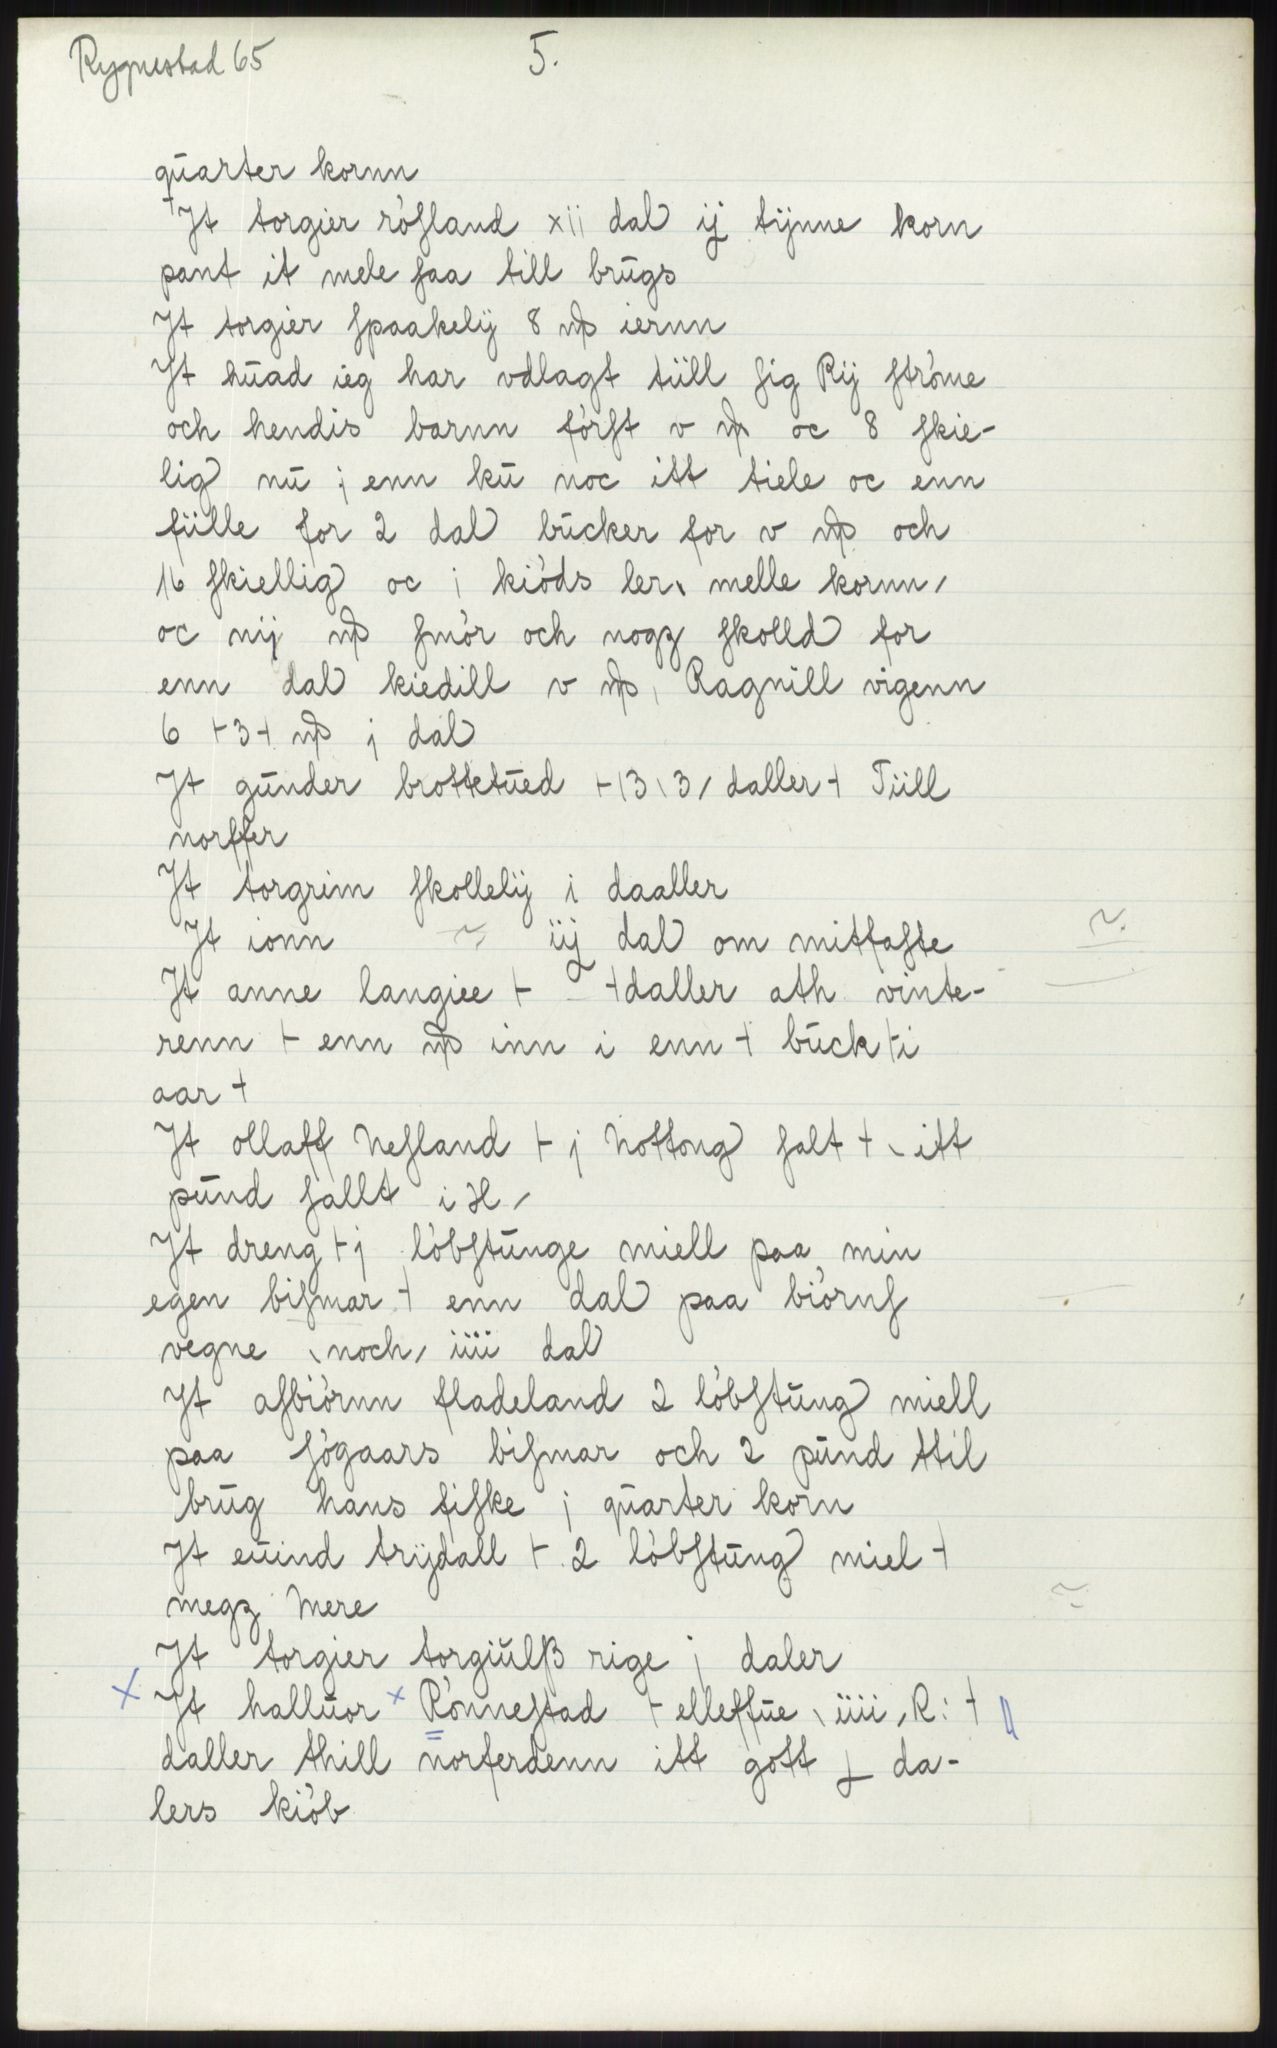 Rygnestad 65
5.
quarter kornn
It torgier rósland xii dal ij tÿnne korn
pant it mele saa till brugs
It torgier spaakelÿ 8 iernn
It huad ieg har vdlagt tüll sig Rÿ stróme
och hendis barnn fórst v oc 8 skie-
lig nu j enn ku noc itt tiele oc enn
fülle for 2 dal bucker for v och
16 skiellig oc j kióds ler, melle kornn,
oc nij smór och nogz skolld for
enn dal kiedill v , Ragnill vigenn
6 ⊢3⊣ j dal
It gunder brottetued ⊢13\3/ daller⊣ Tüll
norffer
It torgrim skollelÿ i daaller
It ionn ~ iij dal om mitfaste ~.
It anne langiee ⊢ ⊣daller ath vinte-
renn ⊢ enn inn i enn ⊣ buck ⊢i
aar ⊣
It ollaff Nesland ⊢ j Nottong salt ⊣ \ itt
pund sallt i Hl/
It dreng ⊢j lóbstunge miell paa min
egen bismar ⊣ enn dal paa biórns
vegne \noch/ iiii dal
It asbiórnn fladeland 2 lóbstung miell
paa sógaars bismar och 2 pund ttil
brug hans fiske j quarter korn
It euind trÿdall ⊢ 2 lóbstung miel ⊣
megz Mere ~
It torgier torgiulß rige j daler
x It halluor x Rónnestad ⊢ elleffue \ iiii / R: ⊣
daller thill norferdenn itt gott da-
lers kiób